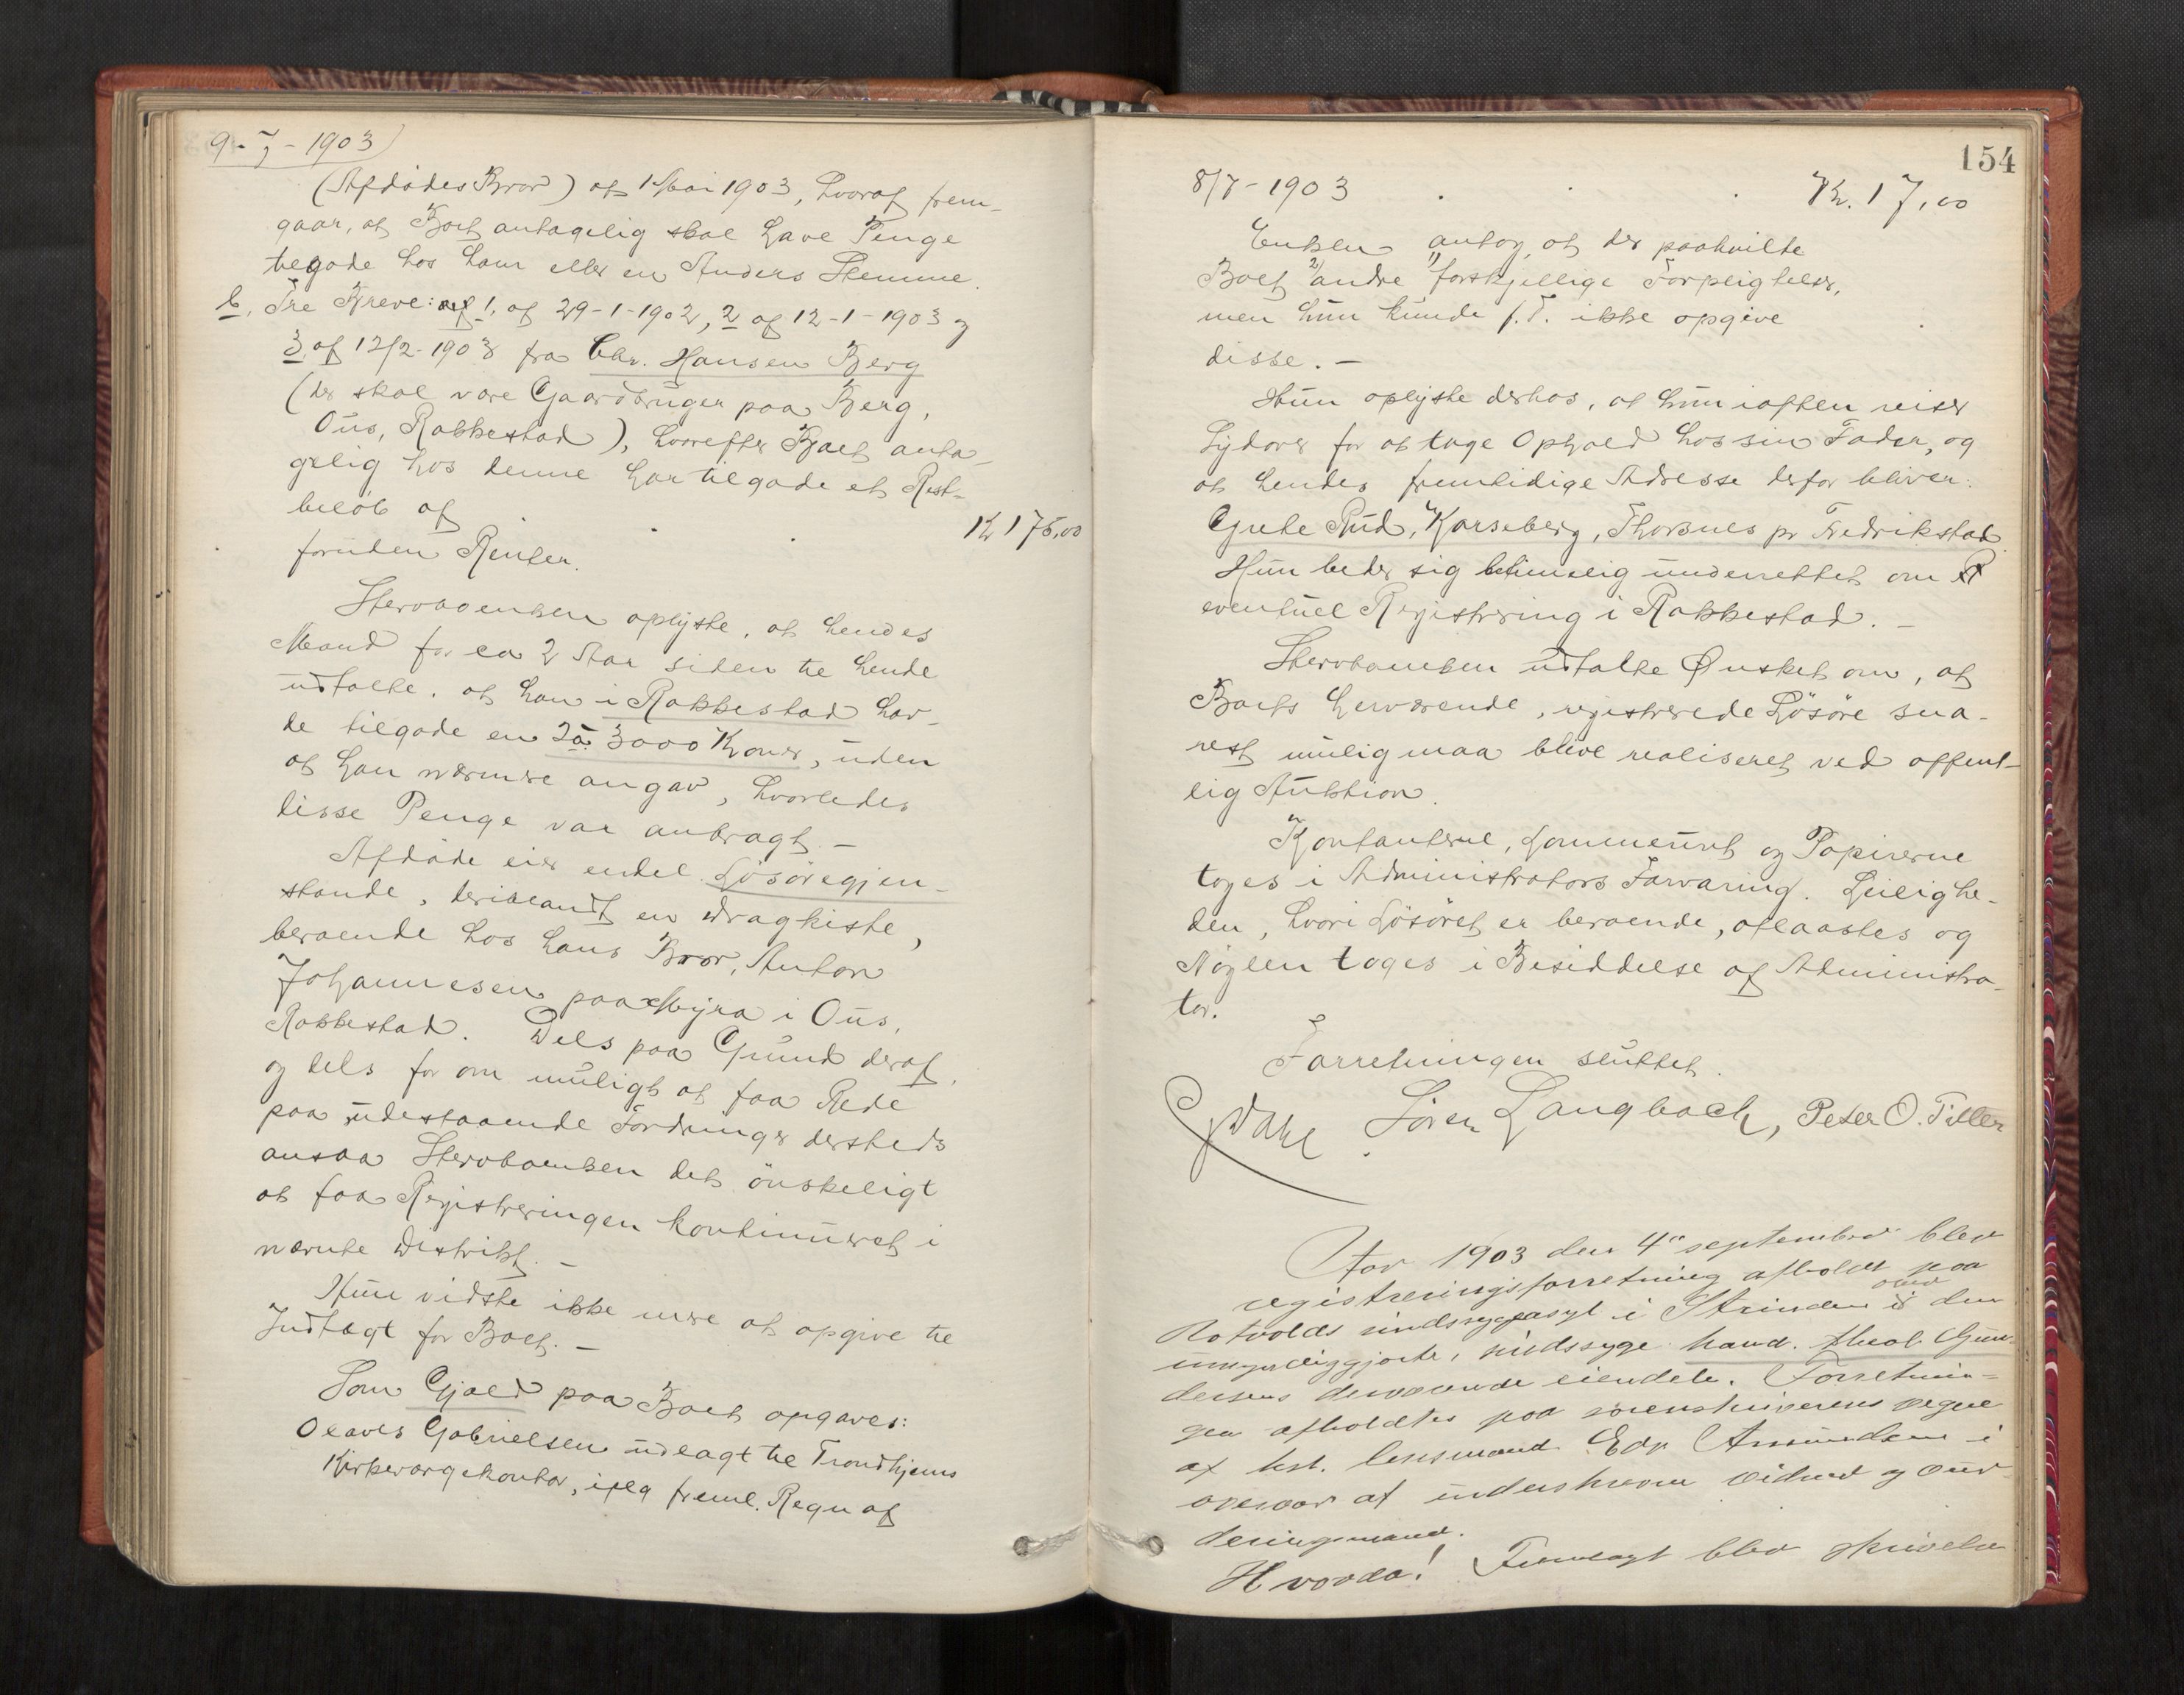 9-7-1903
(Afdødes Bror) af 1 Mai 1903, hvoraf frem-
gaar, at Boet antagelig skal have Penge
tilgode hos ham eller en Anders Stemme.
b, Tre Breve: 1, af 29-1-1902, 2 af 12-1-1903 og
3, af 12/2-1903 fra Chr. Hansen Berg
(der skal være Gaardbruger paa Berg,
Øus, Rakkestad), hvorefter Boet anta-
gelig hos denne har tilgode et Rest-
beløb af Kr 175,00
foruden Renter.
Stervboenken oplyste, at hendes
Mand for ca 2 Aar siden til hende
udtalte, at han i Rakkestad hav-
de tilgode en 2 à 3000 Kroner, uden
at han nærmere angav, hvorledes
disse Penge var anbragt. -
Afdøde eier endel Løsøregjen-
stande, deriblandt en Dragkiste,
beroende hos hans Bror, Anton
Johannesen paa Myra i Øus,
Rakkestad. Dels paa Grund deraf,
og dels for om muligt at faa Rede
paa udestaaende Fordringer dersteds
ansaa Stervboenken det ønskeligt
at faa Registreringen kontinueret i
nævnte Distrikt. -
Hun vidste ikke mere at opgive til
Indtægt for Boet. -
Som Gjæld paa Boet opgaves:
Olaves Gabrielsen udlagt til Trondhjems
Kirkevergekontor, ifølg freml. Regn af
154
8/7-1903 Kr. 17,00
Enken antog, at der paahvilte
Boet 2) andre 1) forskjellige Forpligtelser,
men hun kunde f.T. ikke opgive
disse. -
Hun oplyste derhos, at hun iaften reiser
Sydover for at tage Ophold hos sin Fader, og
at hendes fremtidige Adresse derfor bliver:
Grete Rud, Karseberg, Thorsnes pr Fredrikstad.
Hun beder sig betimelig underrettet om
eventuel Registrering i Rakkestad. -
Stervboenken udtalte Ønsket om, at
Boets herværende, registrerede Løsøre sna-
rest mulig maa blive realiseret ved offent-
lig Auktion.
Kontanterne, Lommeuret og Papirerne
toges i Administrators Forvaring. Leilighe-
den, hvori Løsøret er beroende, aflaastes og
Nøglen toges i Besiddelse af Administra-
tor.
Forretningen sluttet.
Søren Langback, Peter O. Tiller
Aar 1903 den 4de september blev
registreringsforretning afholdt paa
Rotvolds sindssygeasyl i Strinden over den
umyndiggjorte, sindssyge kand. theol. Gun-
dersens derværende eiendele. Forretnin-
gen afholdtes paa sorenskriverens vegne
af kst. lensmand Edv. Amundsen i
overvær af underskrevne vidner og vur-
deringsmænd.
Hvorda! Fremlagt blev skrivelse